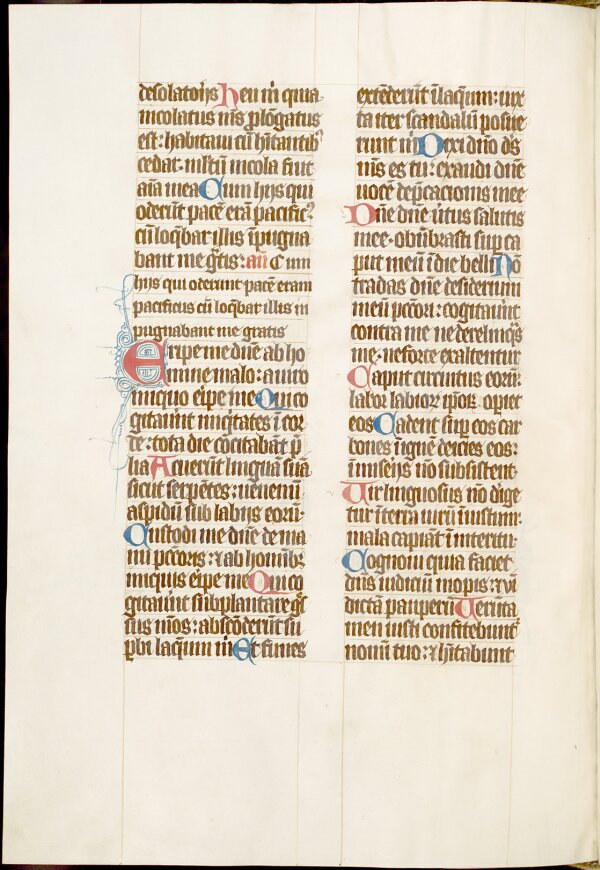 desolatorijs Heu m̄ quia
incolatus m̄s ꝓlōgatus
est: habitaui cū hītantibꝰ
cedar· mltū incola fuit
aīa mea Cum hijs qui
oderūt pacē erā pacificꝰ
cū loqbar illis īpugna
bant me grtis: añ Cum
hijs qui oderunt pacē eram
pacificus cū loqbar illis in
pugnabant me gratis
Eripe me dne ab ho
mine malo: a uiro
iniquo eipe me Qui co
gitauūt iniqtates ī cor
de: tota die cōstituebāt p̄
lia Acuerūt linguā suā
sicut serpētes: uenenū
aspidū sub labijs eorū·
Custodi me dne de ma
nu pctōris: ⁊ ab hominibꝫ
iniquis eipe me Qui co
gitauūt subplantare gͤs
sus mōs: abscōderūt su
pbi laqum m̄ Et funes
extēderūt ī laqum: iux
ta iter scandalū posue
runt m̄ Dixi dno ds
m̄s es tu: exaudi dne
uocē depcacionis mee
Dne dne uirtus salutis
mee· obūbrasti sup ca
put meū ī die belli Nō
tradas dne desiderium
meū pctōri: cogitauūt
contra me ne derelinqs
me· ne forte exaltentur
Caput circuitus eorū·
labor labiorꝫ ipōꝫ opiet
eos Cadent sup eos car
bones ī ignē deicies eos:
ī miserijs nō subsistent·
Uir linguosus nō dirige
tur ī terra uirū iniustum·
mala capiāt ī interitu·
Cognoui quia faciet
dns iudiciū inopis: ⁊ uī
dictā pauperū Ueruta
men iusti confitebunt᷑
nomī tuo: ⁊ hītabunt